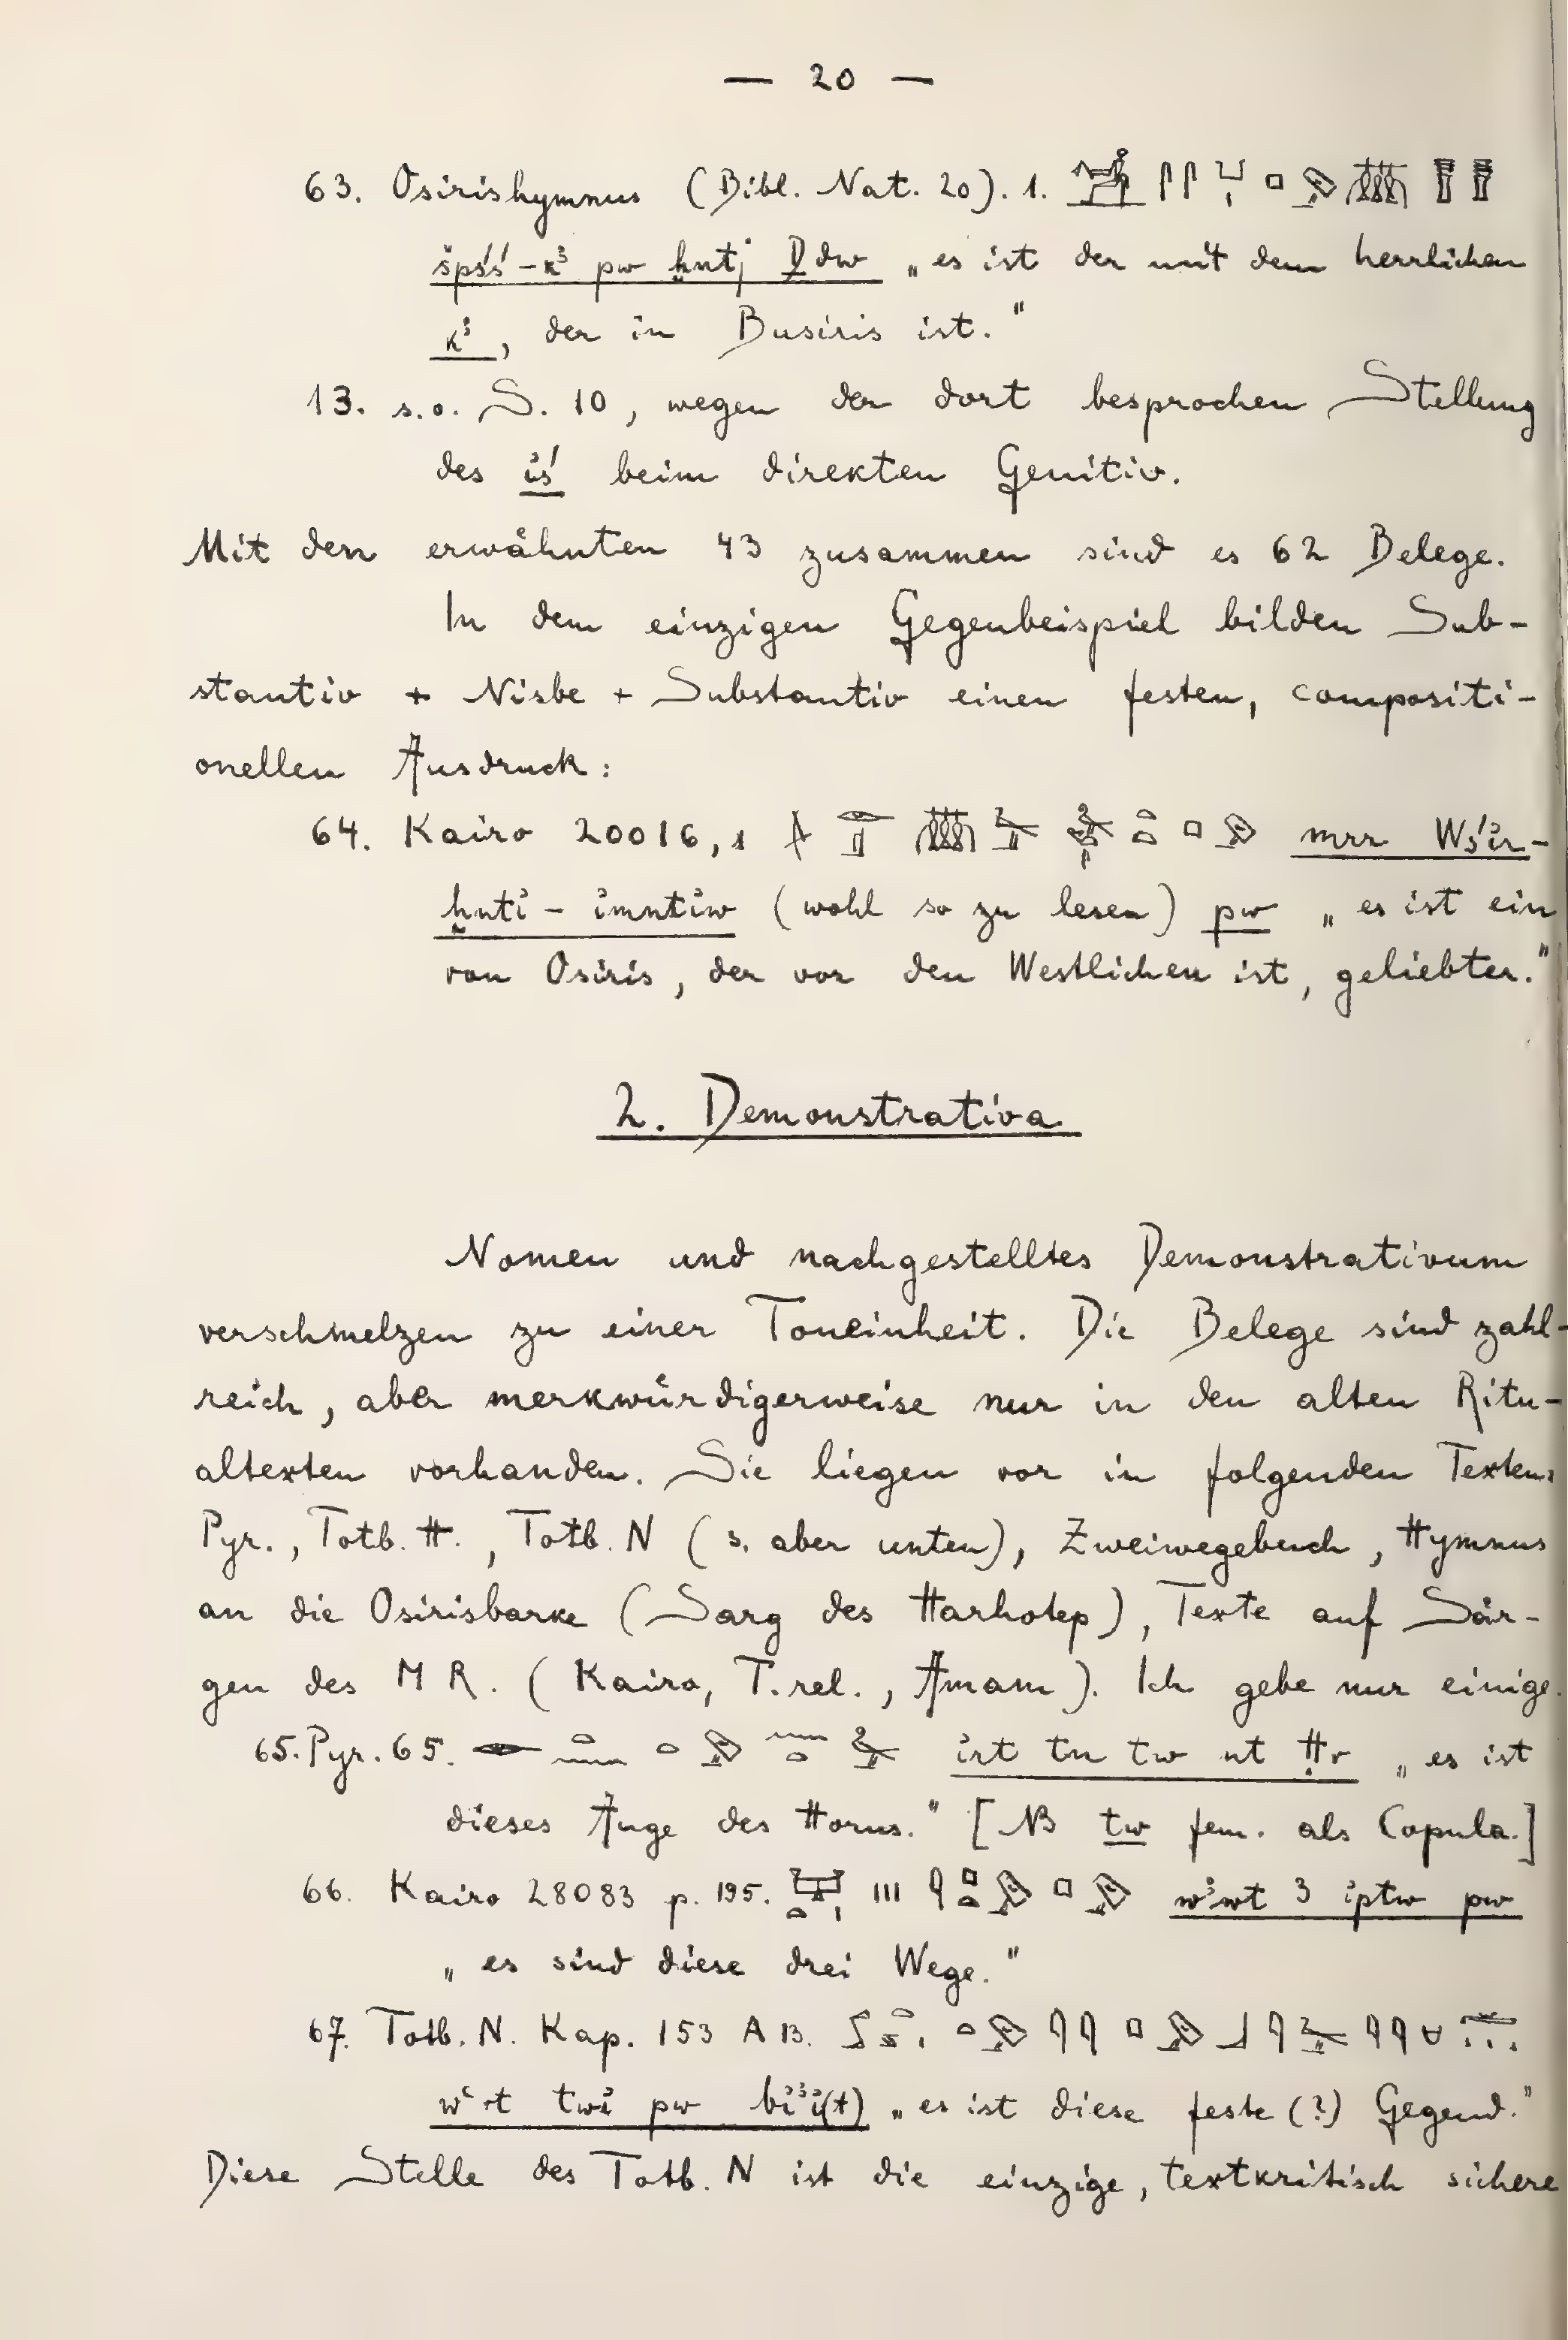 — 20 —
63. Osirishymnus (Bibl. Nat. 20). 1.
špśś-kꜣ pw ḫntj Ḏdw „es ist der mit dem herrlichen
kꜣ, der in Busiris ist."
13. s.o. S. 10, wegen der dort besprochen Stellung
des iś beim direkten Genitiv.
Mit den erwähnten 43 zusammen sind es 62 Belege.
In dem einzigen Gegenbeispiel bilden Sub-
stantiv + Nisbe + Substantiv einen festen, compositi-
onellen Ausdruck:
64. Kairo 20016,1 mrr Wśir-
ḫnti-imntiw (wohl so zu lesen) pw „es ist ein
von Osiris, der vor den Westlichen ist, geliebter."
2. Demonstrativa
Nomen und nachgestelltes Demonstrativum
verschmelzen zu einer Toneinheit. Die Belege sind zahl-
reich, aber merkwürdigerweise nur in den alten Ritu-
altexten vorhanden. Sie liegen vor in folgenden Texten:
Pyr., Totb. H., Totb. N (s. aber unten), Zweiwegebuch, Hymnus
an die Osirisbarke (Sarg des Harhotep), Texte auf Sär-
gen des MR. (Kairo, T.rel., Amam). Ich gebe nur einige.
65. Pyr. 65. irt tn tw nt Ḥr „es ist
dieses Auge des Horus." [NB tw fem. als Copula.]
66. Kairo 28083 p. 195. wꜣwt 3 iptw pw
„es sind diese drei Wege."
67. Totb. N. Kap. 153 A B.
wꜥrt twi pw biꜣi(t) „es ist diese feste (?) Gegend."
Diese Stelle des Totb. N ist die einzige, textkritisch sichere